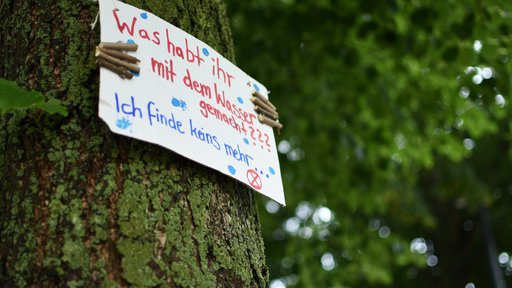 Was habt ihr
mit dem Wasser
gemacht???
Ich finde keins mehr...